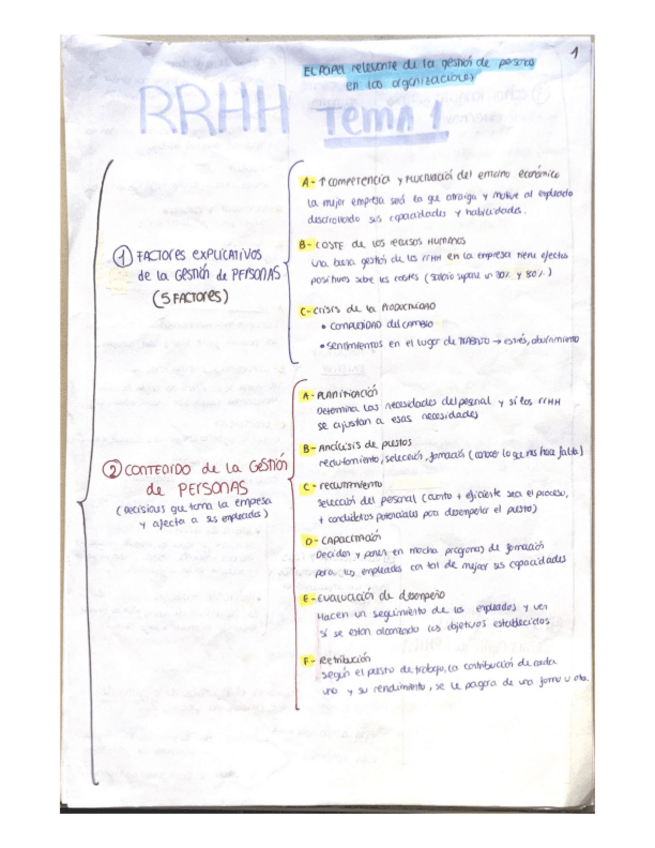 1
EL PAPEL relevante de la gestión de personas
en las organizaciones
RRHH TEMA 1
① FACTORES EXPLICATIVOS
de la GESTIÓN de PERSONAS
(5 FACTORES)
A- ↑ competencia y fluctuación del entorno económico
La mejor empresa será la que atraiga y motive al empleado
desarrollando sus capacidades y habilidades.
B- COSTE de los recursos Humanos
una buena gestión de los rrHH en la empresa tiene efectos
positivos sobre los costes (salario supone un 30% y 80%)
C- crisis de la PRODUCTIVIDAD
• COMPLEJIDAD del CAMBIO
• sentimientos en el lugar de TRABAJO → estrés, aburrimiento
② CONTENIDO de la GESTIÓN
de PERSONAS
(decisiones que toma la empresa
y afecta a sus empleados)
A- PLANIFICACIÓN
Determina las necesidades del personal y si los rrHH
se ajustan a esas necesidades
B- Análisis de puestos
reclutamiento, selección, formación (conocer lo que nos hace falta)
C- reclutamiento
selección del personal (cuanto + eficiente sea el proceso,
+ candidatos potenciales para desempeñar el puesto)
D- CAPACITACIÓN
Deciden y ponen en marcha programas de formación
para los empleados con tal de mejorar sus capacidades
E- Evaluación de desempeño
Hacen un seguimiento de los empleados y ver
si se están alcanzando los objetivos establecidos
F- Retribución
según el puesto de trabajo, la contribución de cada
uno y su rendimiento, se le pagará de una forma u otra.